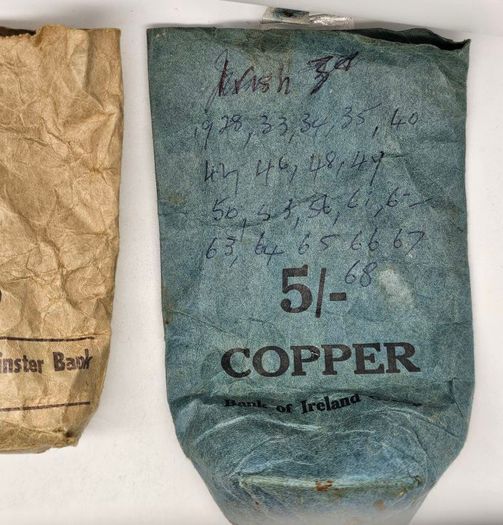 Irish 3d
1928, 33, 34, 35, 40
42, 46, 48, 49
50, 53, 56, 61, 62
63, 64 65 66 67
68
5/-
COPPER
Bank of Ireland
inster Bank